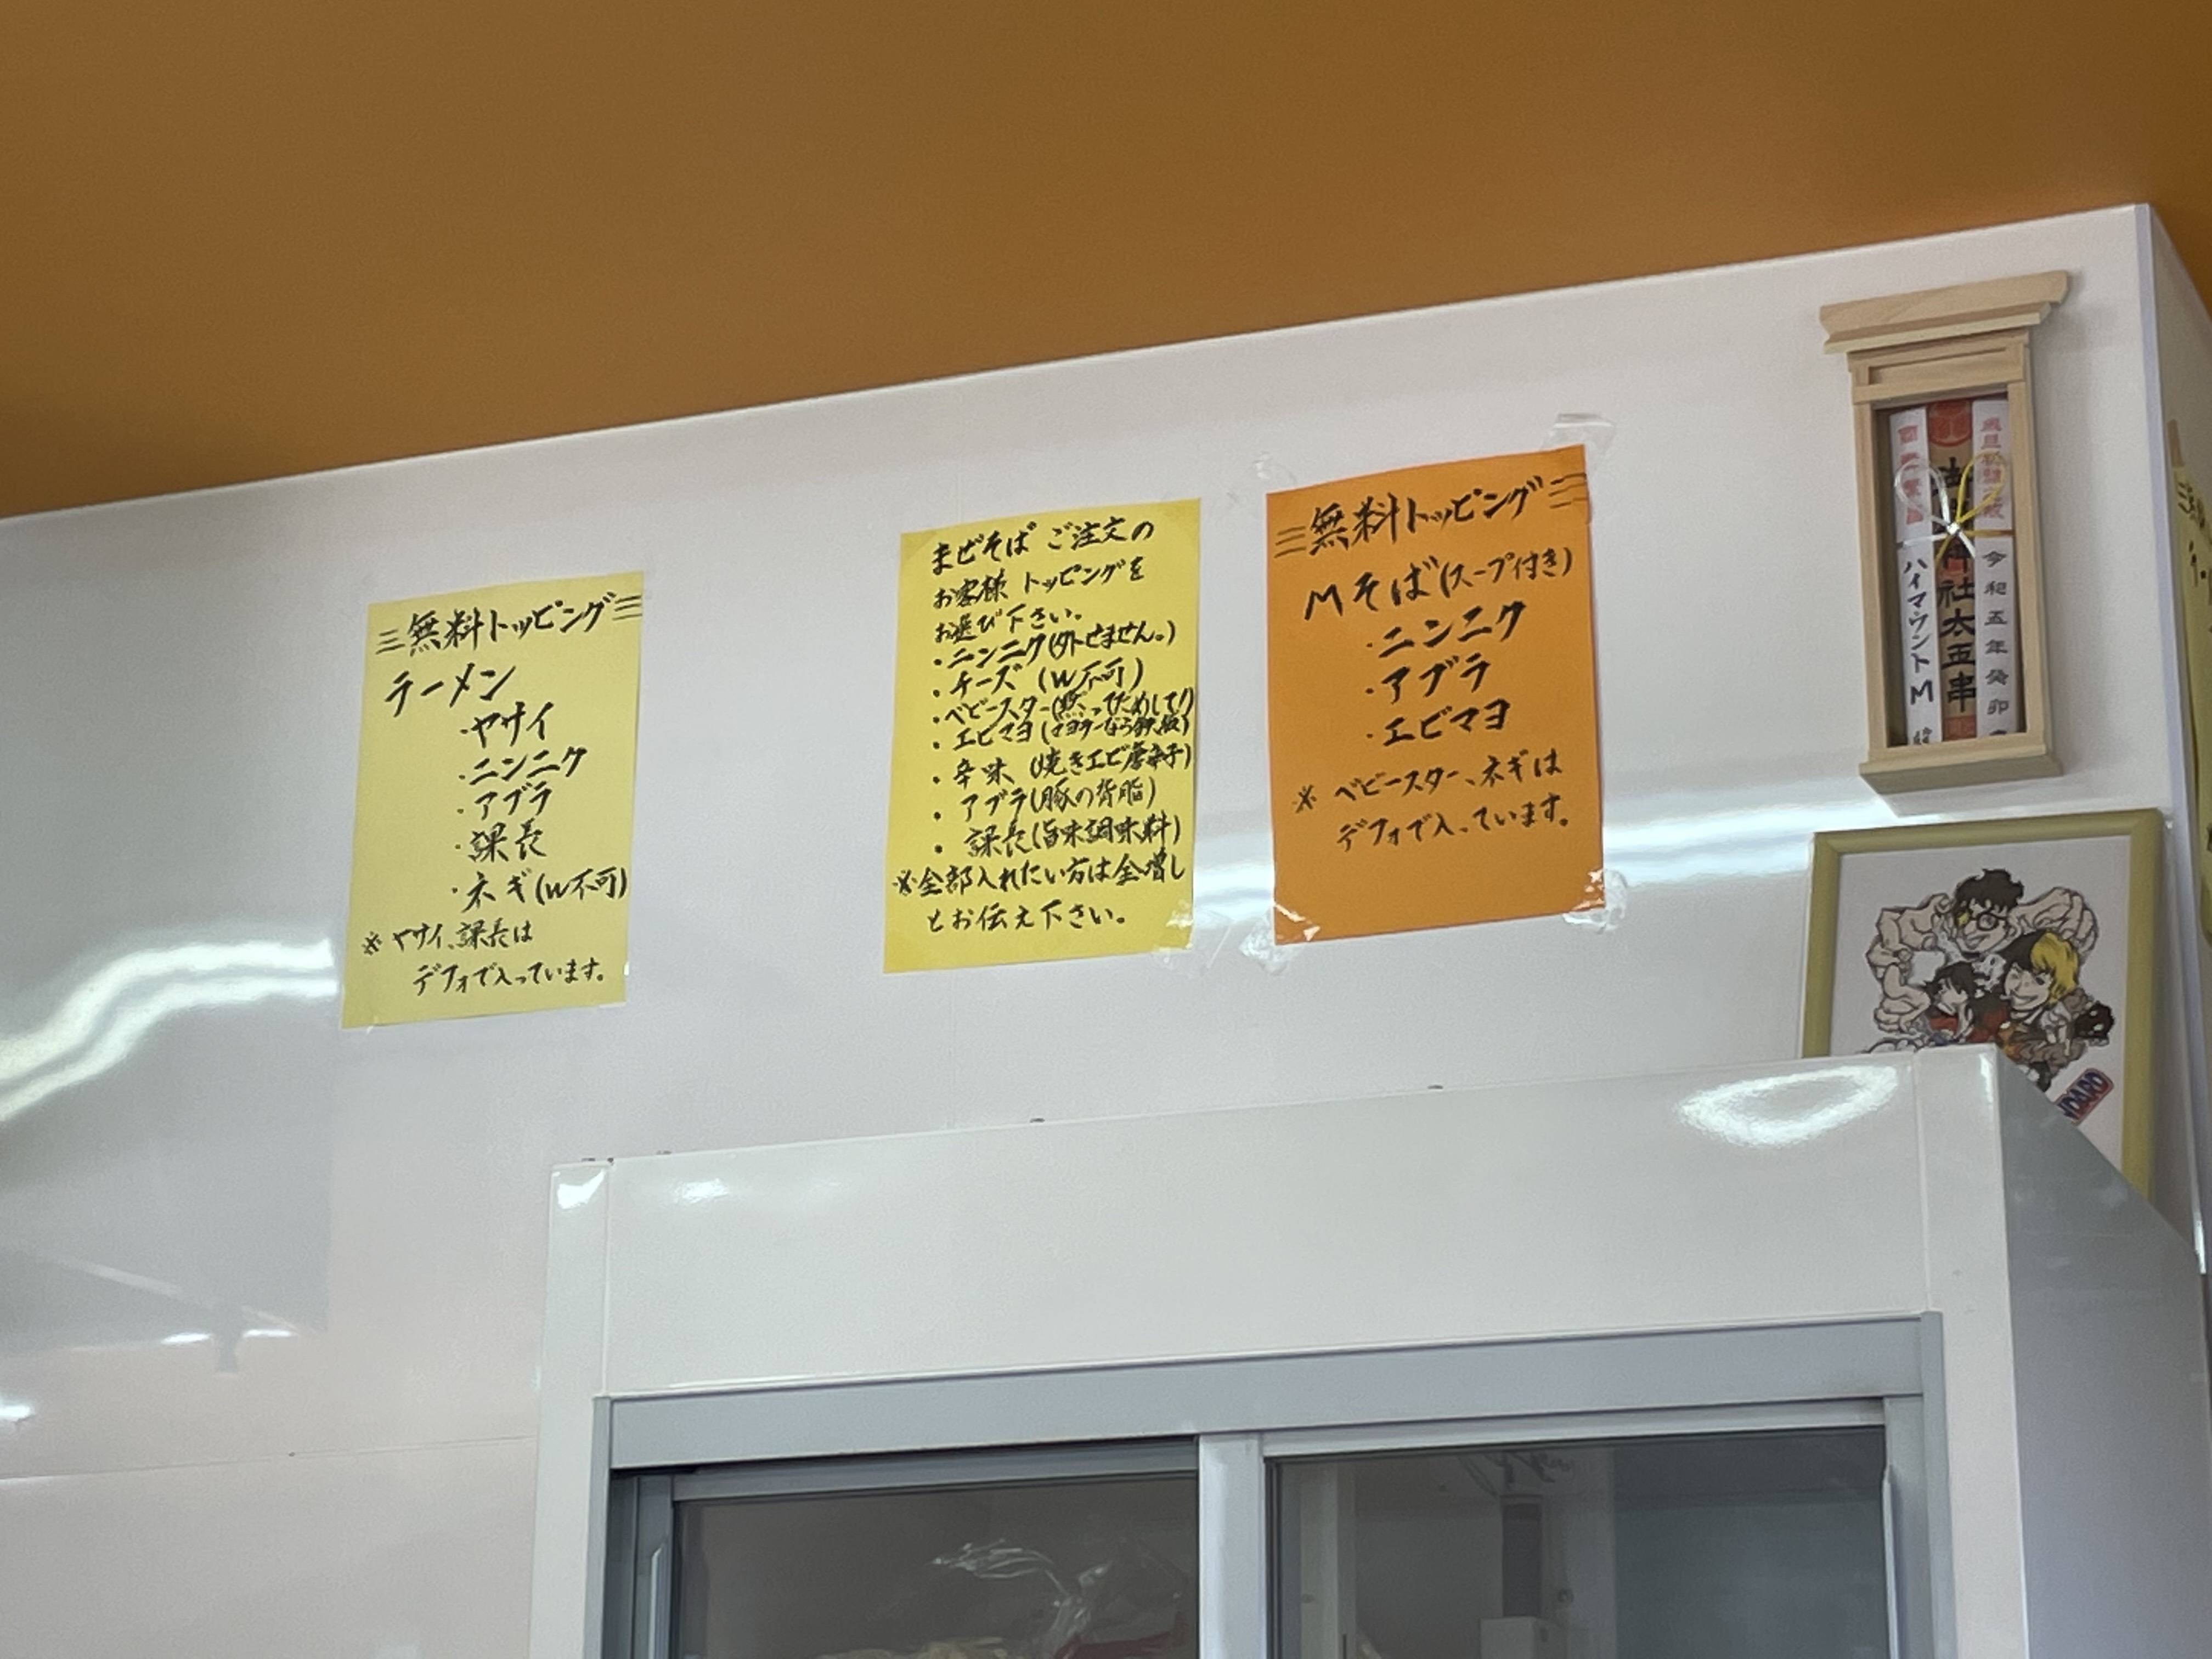 三無料トッピング三
ラーメン
・ヤサイ
・ニンニク
・アブラ
・課長
・ネギ(W不可)
※ヤサイ、課長は
デフォで入っています。
まぜそば ご注文の
お客様 トッピングを
お選び下さい。
・ニンニク(外せません。)
・チーズ(W不可)
・ベビースター(黙ってためして!)
・エビマヨ(マヨラーなら鉄板)
・辛味(焼きエビ唐辛子)
・アブラ(豚の背脂)
・課長(旨味調味料)
※全部入れたい方は全増し
とお伝え下さい。
三無料トッピング三
Mそば(スープ付き)
・ニンニク
・アブラ
・エビマヨ
※ベビースター、ネギは
デフォで入っています。
商売繁昌
ハイマウントM
神社太玉串
令和五年癸卯